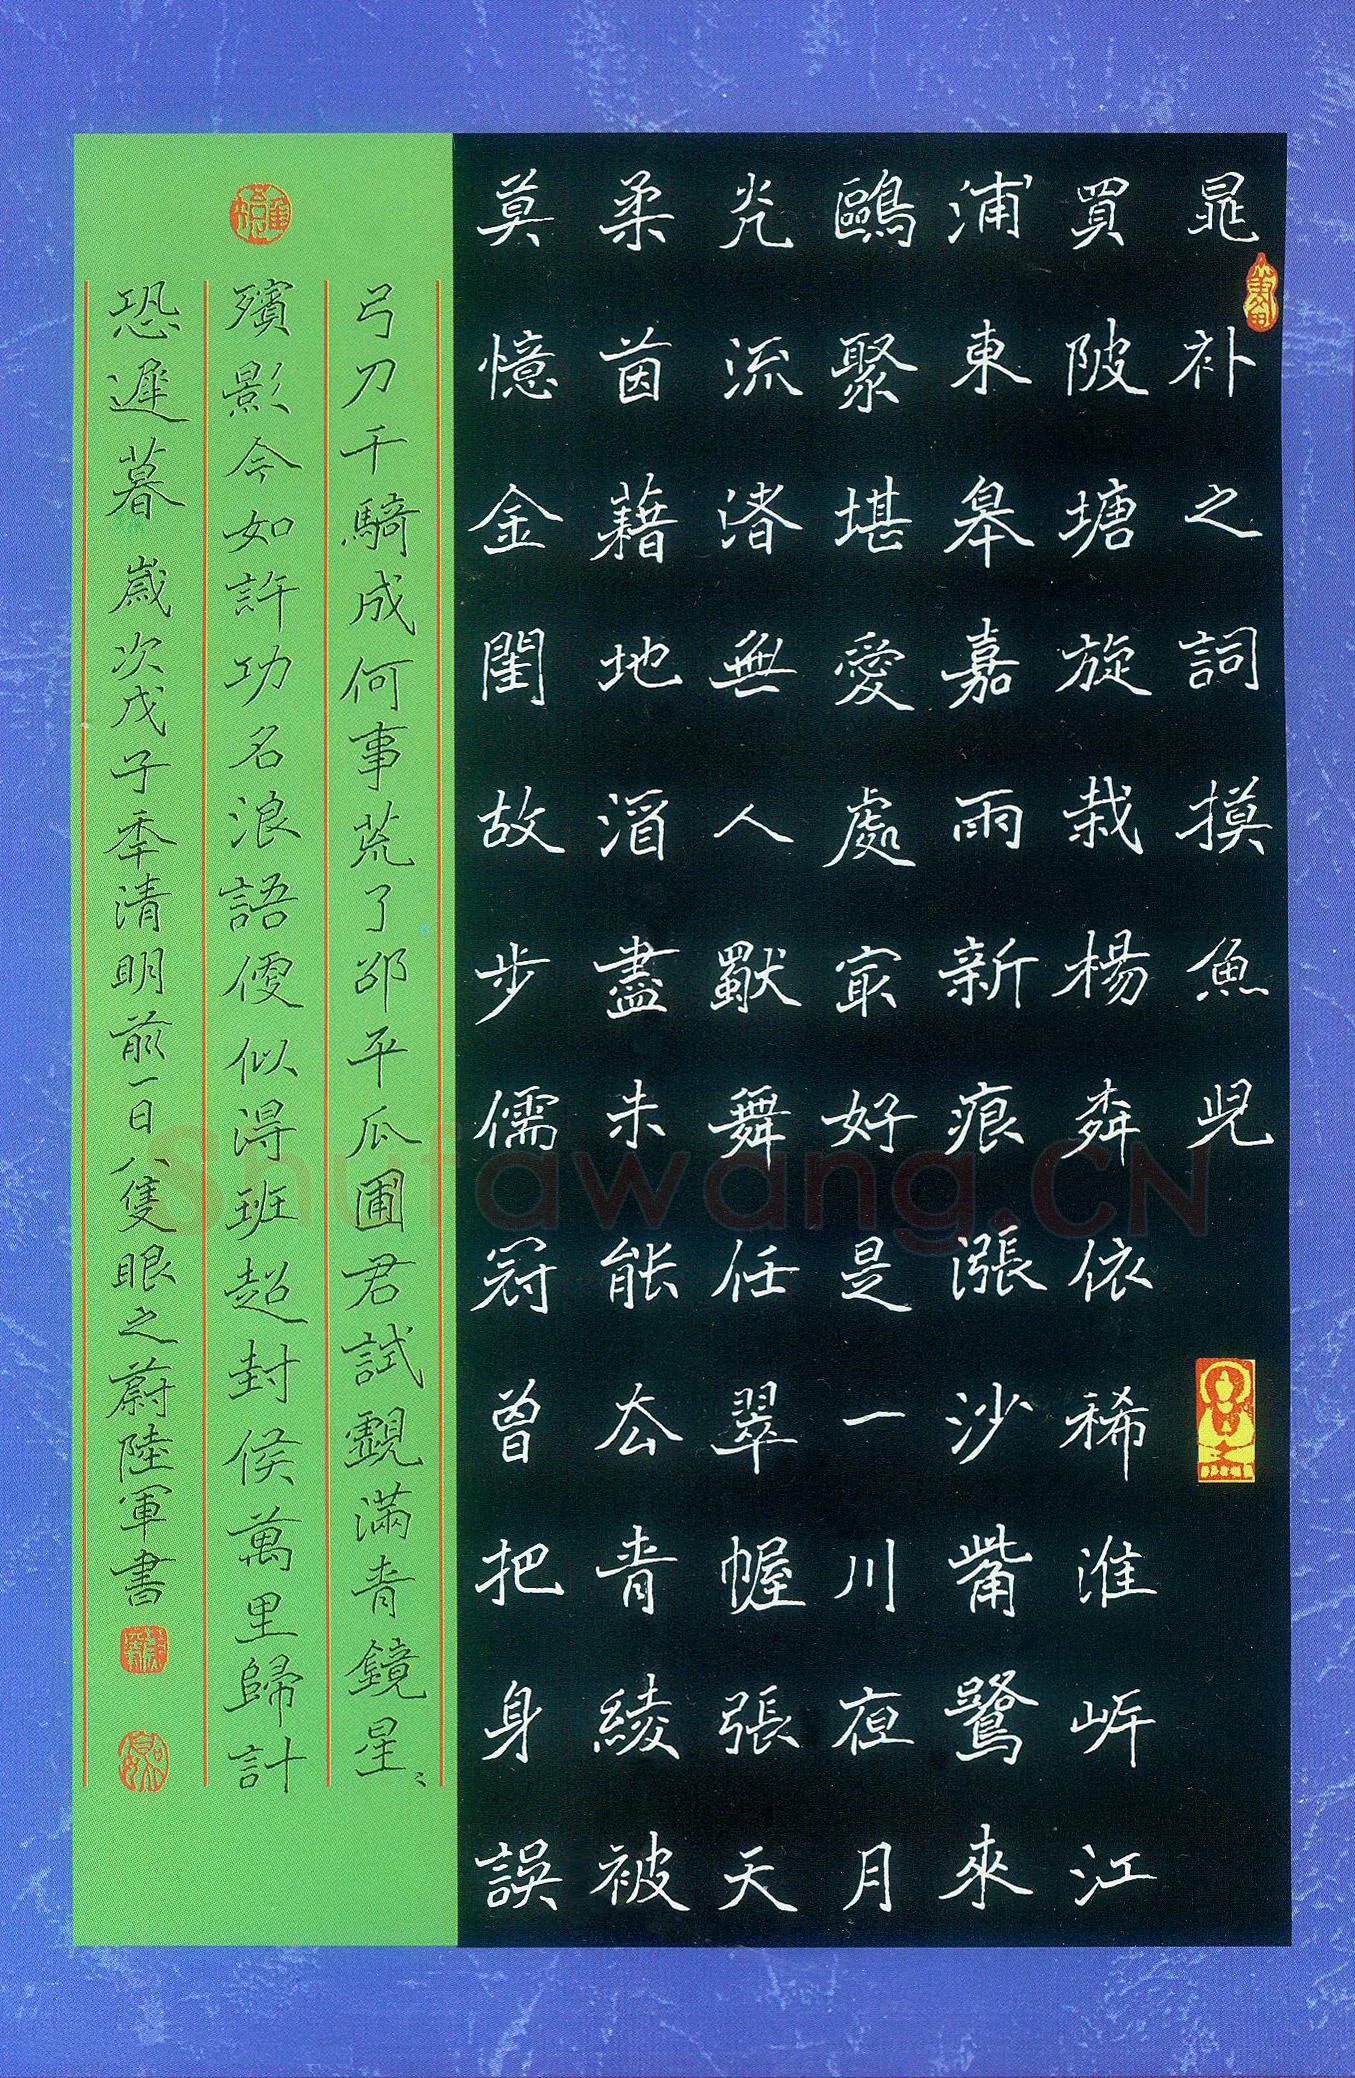 晁补之詞摸魚兒
買陂塘旋栽楊柳依稀淮岸江
浦東皋嘉雨新痕漲沙觜鷺來
鷗聚堪愛處最好是一川夜月
光流渚無人獨舞任翠幄張天
柔茵藉地酒盡未能去青綾被
莫憶金閨故步儒冠曾把身誤
弓刀千騎成何事荒了邵平瓜圃君試覷滿青鏡星〻
殯影今如許功名浪語便似得班超封侯萬里歸計
恐遲暮 歲次戊子秊清明前一日八隻眼之蔚陸軍書
Shufawang.CN